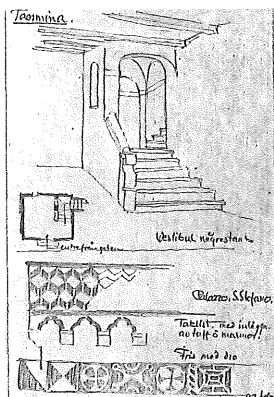 Taormina.
Vestibul någrestans
Palazzo. S. Stefano.
Taklist. med inlägg.
av tuff o marmor!
Fris med dio